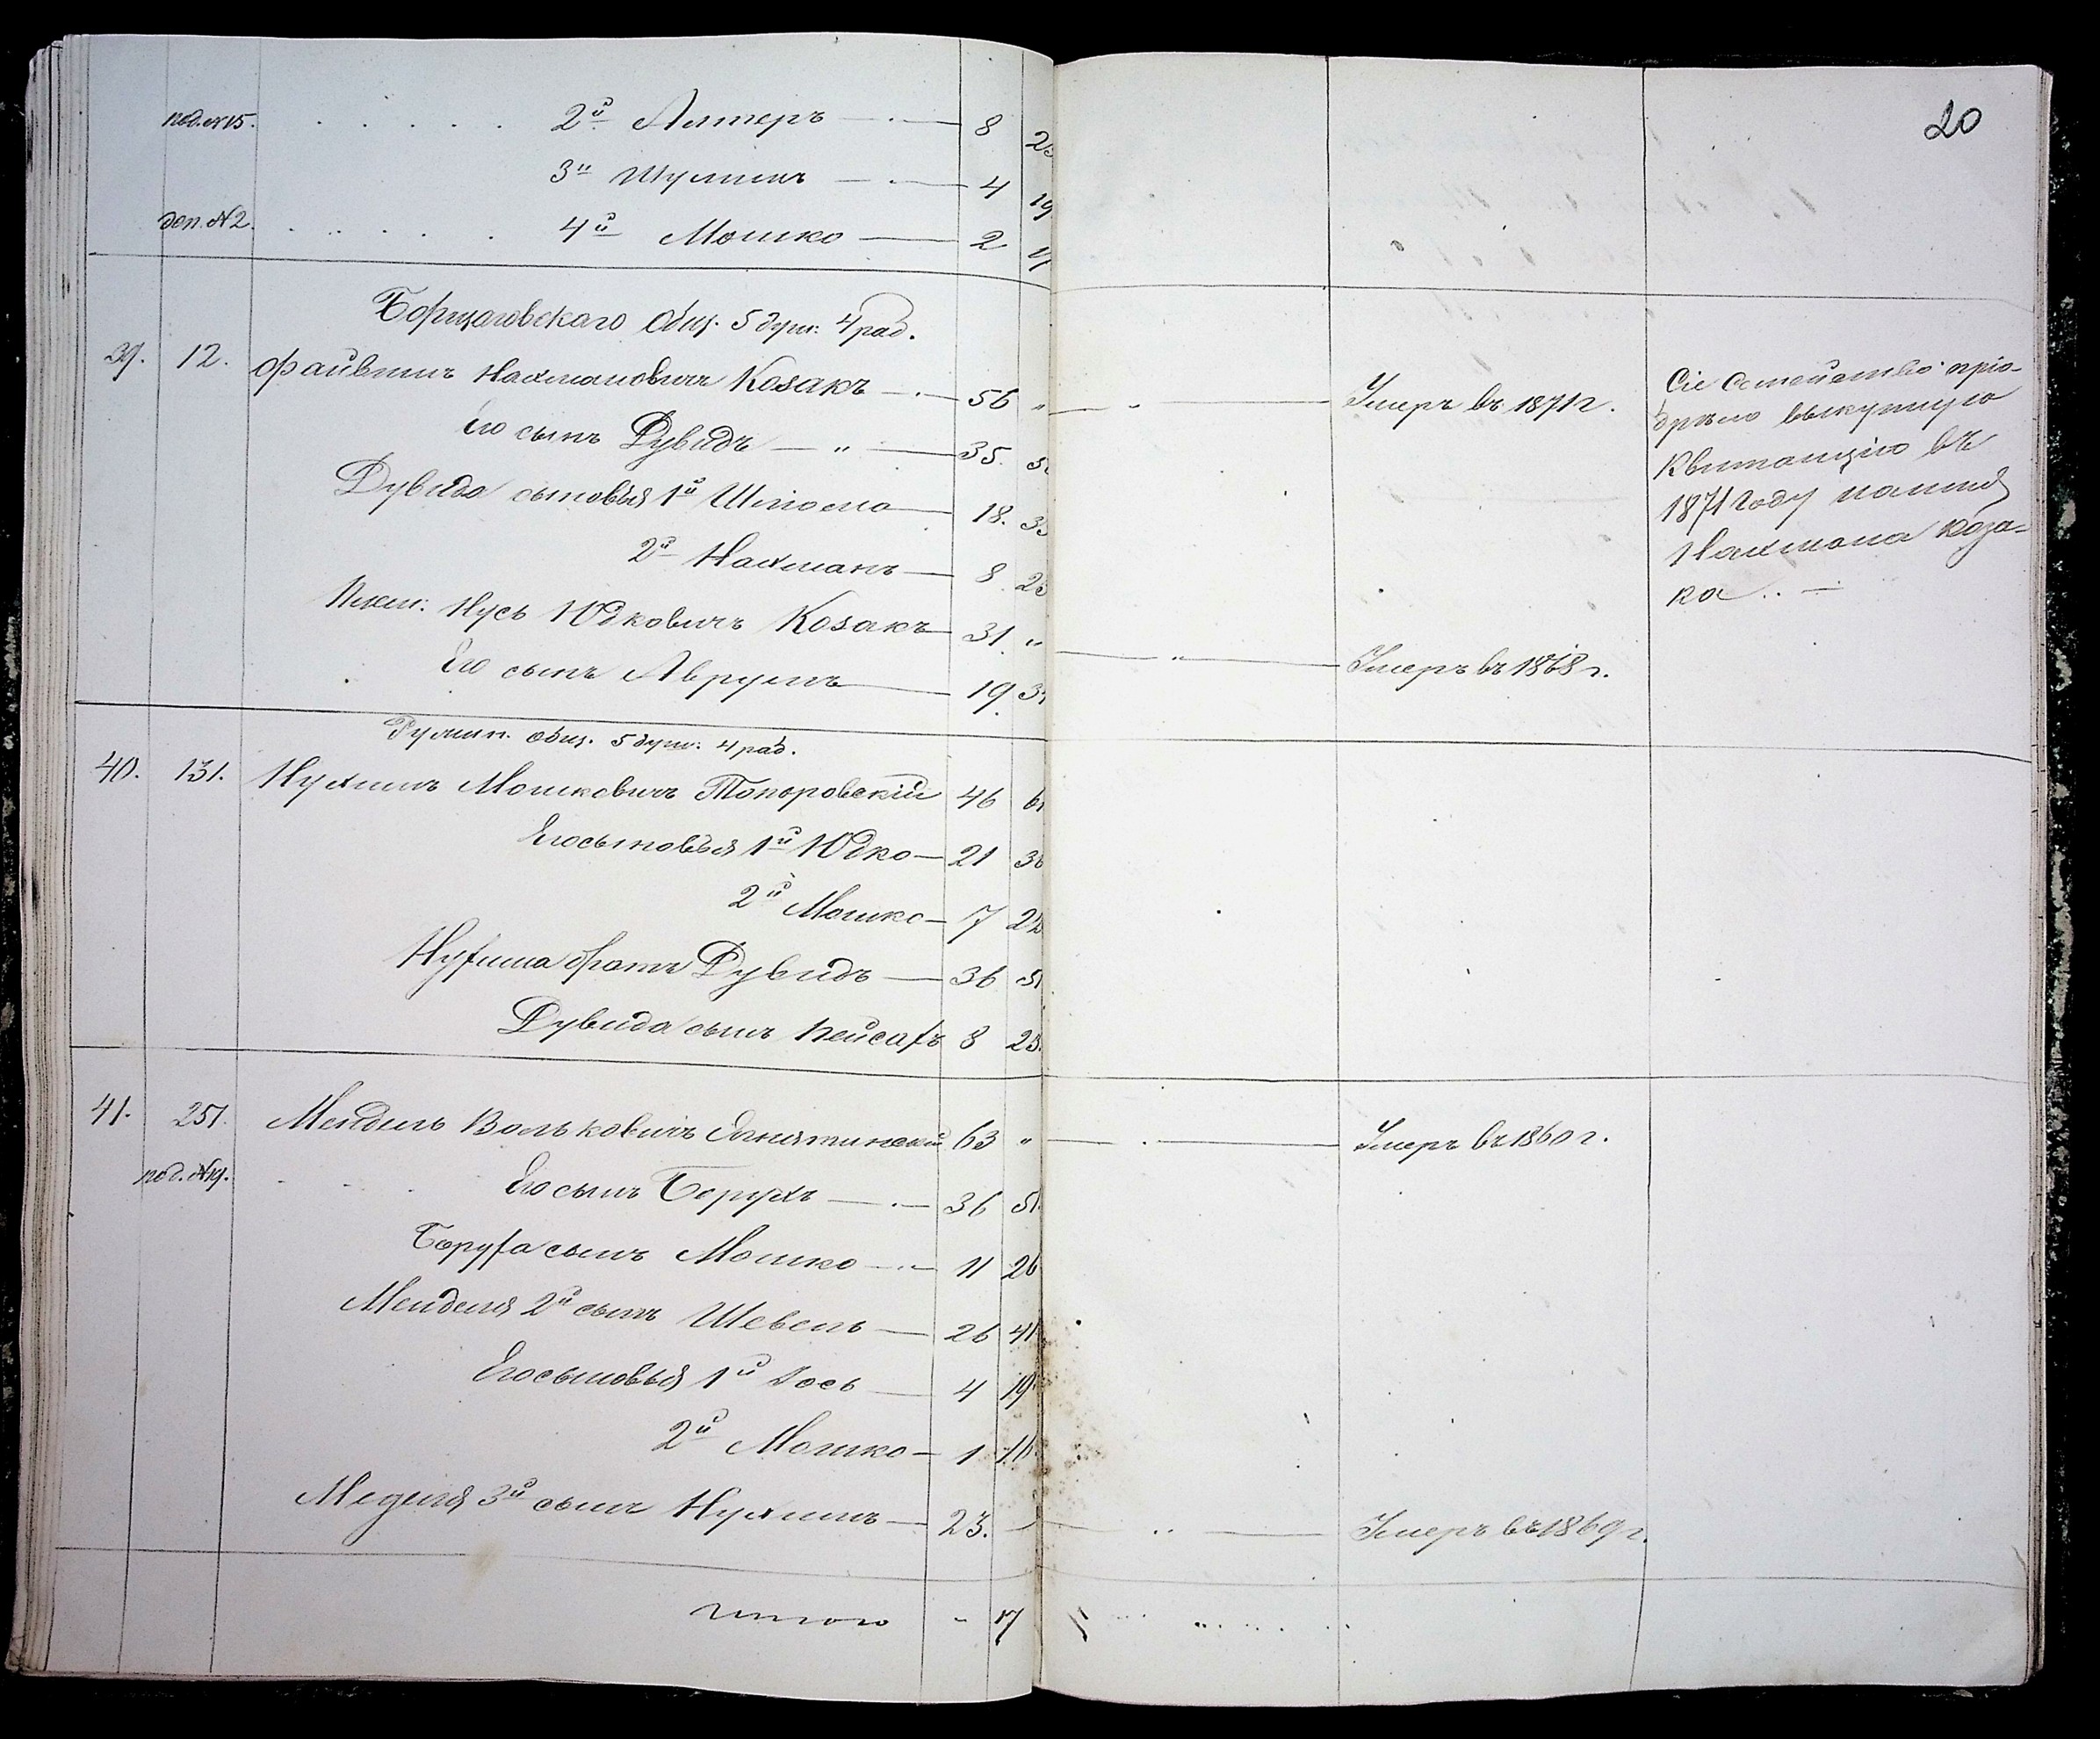 20
под. №15. 2й Алтеръ 8 23
3й Шулимъ 4 19
доп. №2. 4й Мошко 2
Борщаговскаго общ. 5 душ. 4 раб.
39. 12. Файвишъ Нахмановичъ Козакъ 56 " Умеръ въ 1871 г.
Его сынъ Дувидъ 35.
Дувида сыновья 1й Шлiома 18. 33
2й Нахманъ 8 23
Плем. Нусь Юдковичъ Козакъ 31. " Умеръ въ 1868 г.
Его сынъ Аврумъ 19. 34
Сiе семейство прiо-
брѣло выкупную
квитанцiю въ
1871 году на имя
Нахмана Коза-
ка
общ. 5 душ. 4 раб.
40. 131. Нухимъ Мошковичъ Топоровскiй 46 61
Его сыновья 1й Юдко 21 36
2й Мошко 7 22
Нухима братъ Дувидъ 36 51
Дувида сынъ Пейсахъ 8 23.
41. 251. Мендель Вольковичъ 63 " Умеръ въ 1860 г.
под. №19. Его сынъ Борухъ 36 51.
Боруха сынъ Мошко 11 26
Менделя 2й сынъ Шевель 26 41
Его сыновья 1й Iось 4 19
2й Мошко 1 16
Менделя 3й сынъ Нухимъ 23. Умеръ въ 1869 г.
итого 17